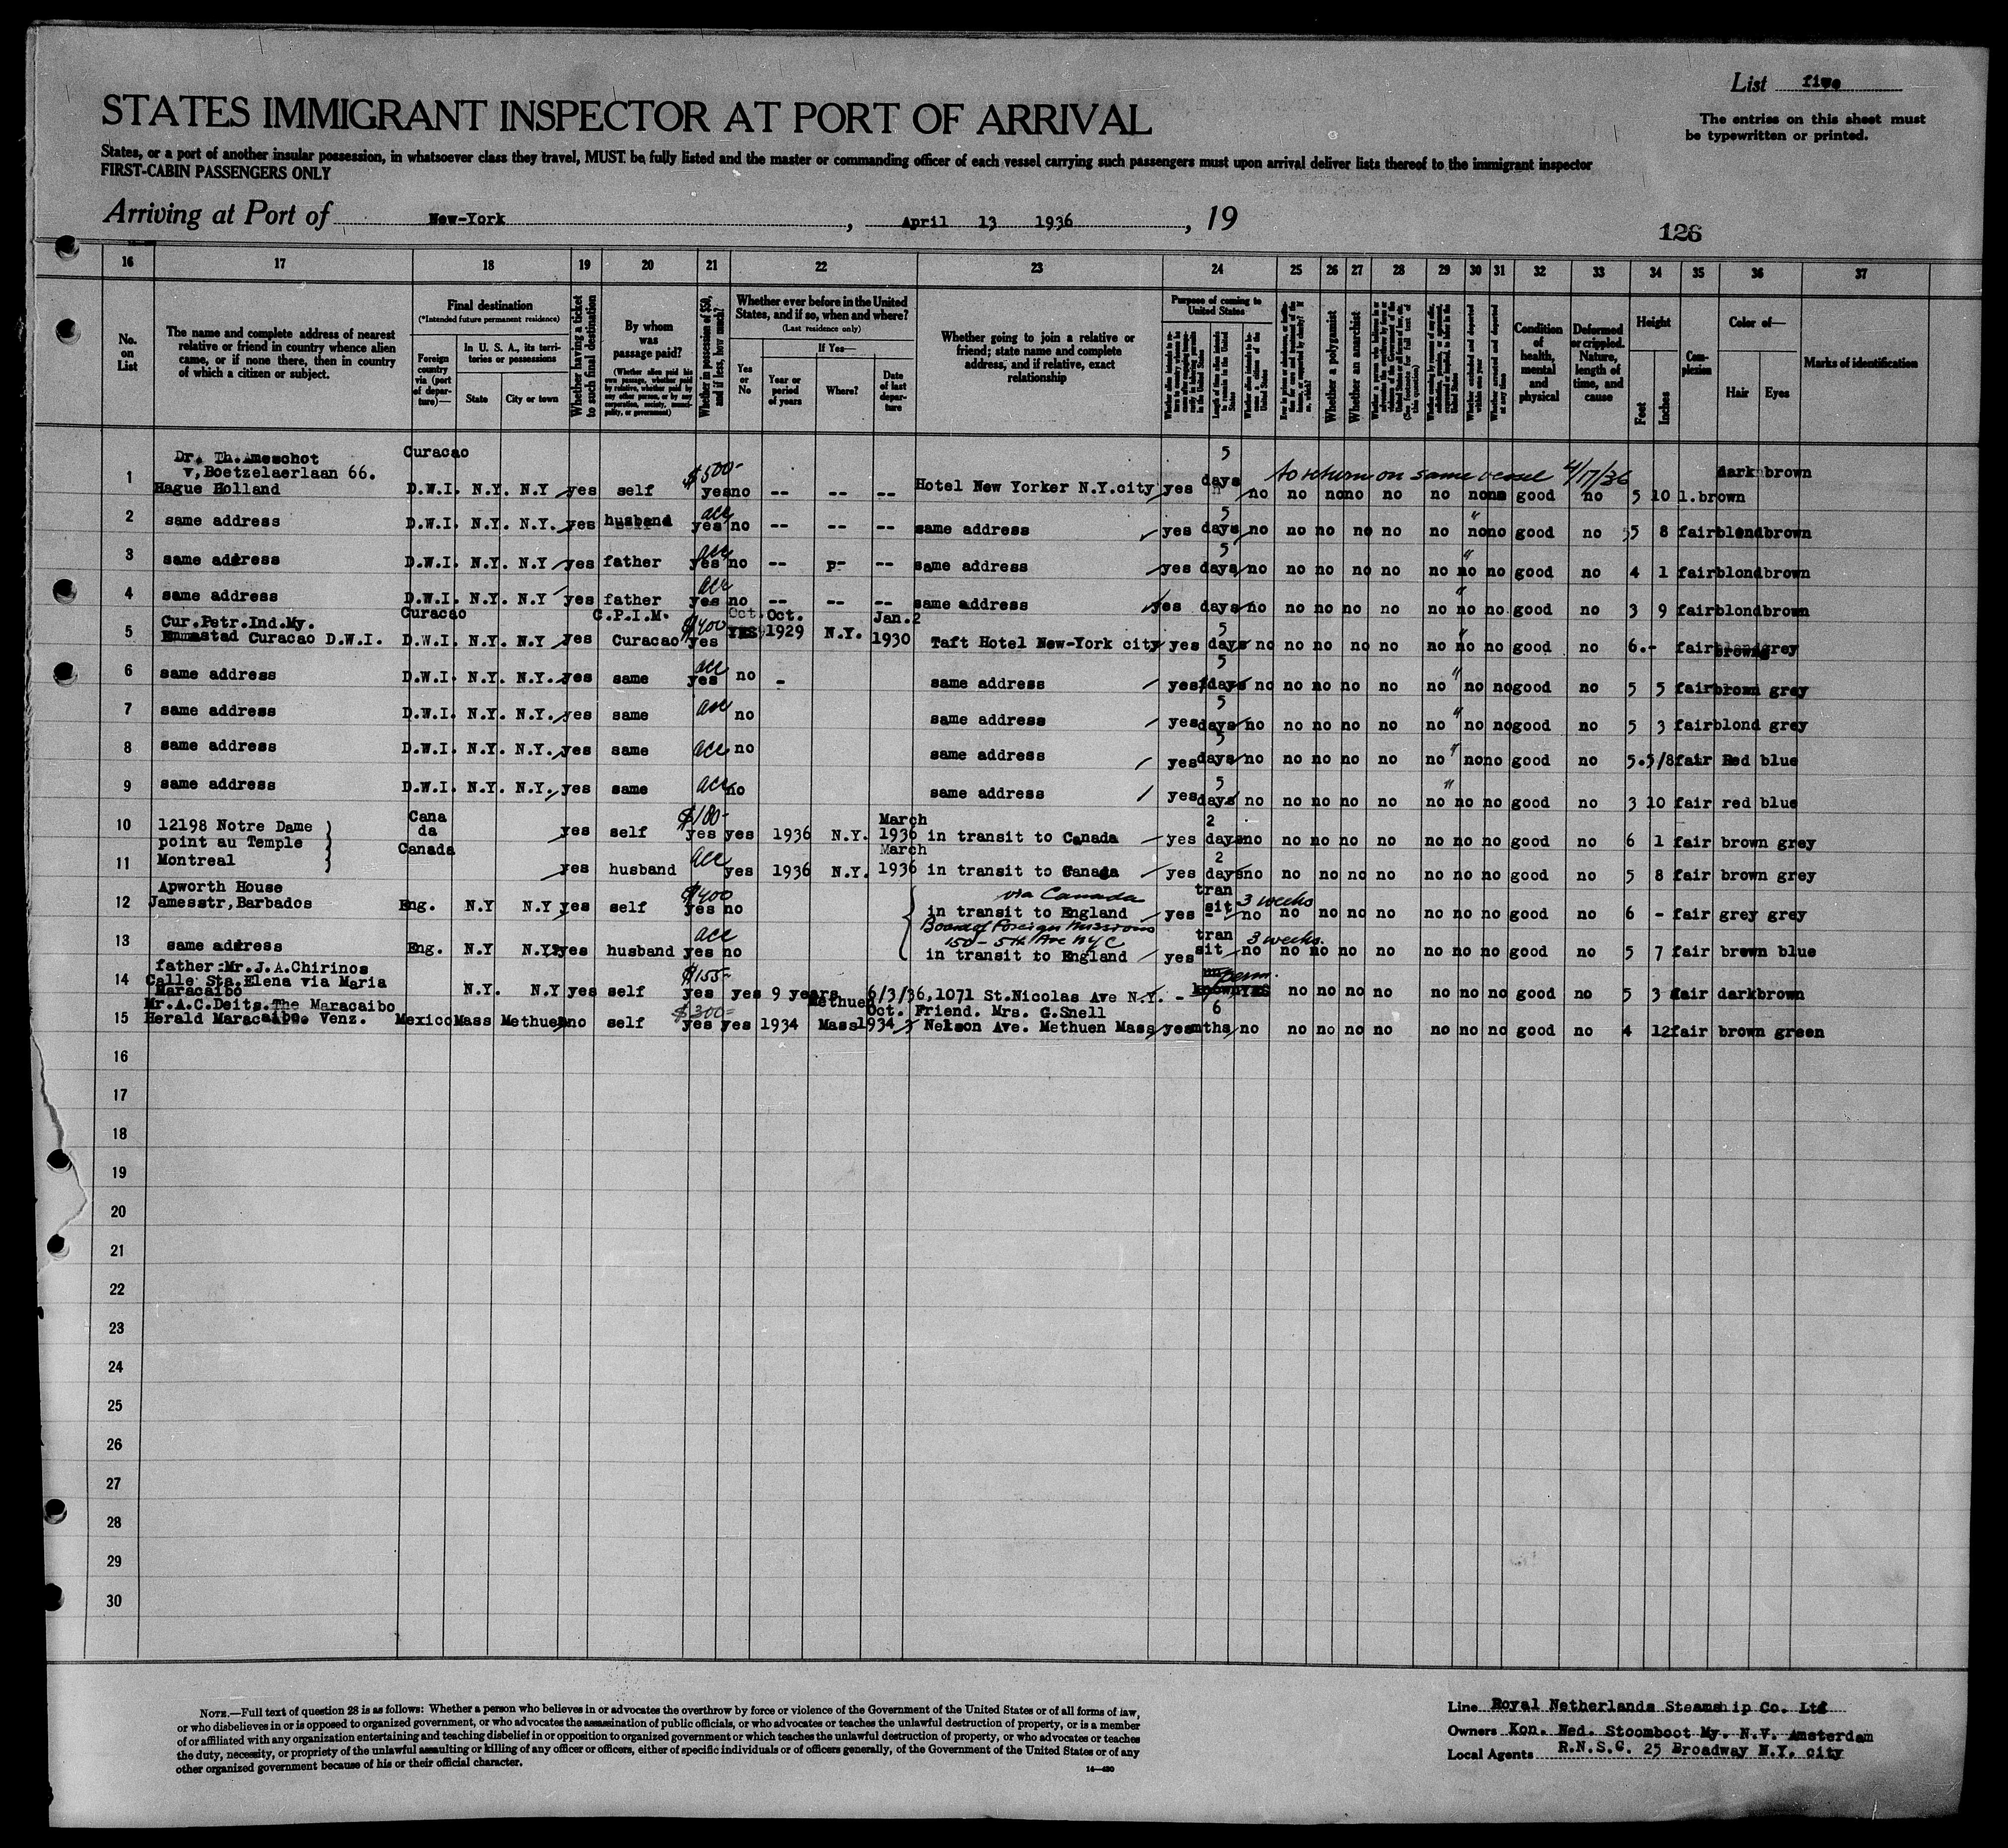 List five
STATES IMMIGRANT INSPECTOR AT PORT OF ARRIVAL
The entries on this sheet must
be typewritten or printed.
States, or a port of another insular possession, in whatsoever class they travel, MUST be fully listed and the master or commanding officer of each vessel carrying such passengers must upon arrival deliver lists thereof to the immigrant inspector
FIRST-CABIN PASSENGERS ONLY
Arriving at Port of New-York, April 13 1936, 19
126
16 17 18 19 20 21 22 23 24 25 26 27 28 29 30 31 32 33 34 35 36 37
No. on List
The name and complete address of nearest relative or friend in country whence alien came, or if none there, then in country of which a citizen or subject.
Final destination
(*Intended future permanent residence)
Foreign country via (port of departure)—
In U. S. A., its territories or possessions
State
City or town
Whether having a ticket to such final destination
By whom was passage paid?
(Whether alien paid his own passage, whether paid by relative, whether paid by any other person, or by any corporation, society, municipality, or government)
Whether in possession of $50, and if less, how much?
Whether ever before in the United States, and if so, when and where?
(Last residence only)
Yes or No
If Yes—
Year or period of years
Where?
Date of last departure
Whether going to join a relative or friend; state name and complete address, and if relative, exact relationship
Purpose of coming to United States
Length of time alien intends to remain in the United States
Whether a polygamist
Whether an anarchist
Whether arrested and deported at any time
Condition of health, mental and physical
Deformed or crippled. Nature, length of time, and cause
Height
Feet
Inches
Complexion
Color of—
Hair
Eyes
Marks of identification
1 Dr. Th. Ameschot v. Boetzelaerlaan 66. Hague Holland Curacao D.W.I. N.Y. N.Y yes self $500- yes no -- -- -- Hotel New Yorker N.Y.city yes 5 days no to return on same vessel 4/17/36 no no no no no no no good no 5 10 l.brown dark brown
2 same address D.W.I. N.Y. N.Y. yes husband acc yes no -- -- -- same address yes 5 days no no no no no no " no no good no 5 8 fair blond brown
3 same address D.W.I. N.Y. N.Y yes father acc yes no -- p- -- same address yes 5 days no no no no no no " no no good no 4 1 fair blond brown
4 same address D.W.I. N.Y. N.Y yes father acc yes no -- -- -- same address yes days no no no no no no " no no good no 3 9 fair blond brown
5 Cur.Petr.Ind.My. Emmastad Curacao D.W.I. Curacao D.W.I. N.Y. N.Y yes C.P.I.M. Curacao $400 yes Oct. YES Oct. 1929 N.Y. Jan.2 1930 Taft Hotel New-York city yes 5 days no no no no no no " no no good no 6.- fair brown grey
6 same address D.W.I. N.Y. N.Y. yes same acc yes no - same address yes 5 days no no no no no no " no no good no 5 5 fair brown grey
7 same address D.W.I. N.Y. N.Y. yes same acc no same address yes 5 days no no no no no no " no no good no 5 3 fair blond grey
8 same address D.W.I. N.Y. N.Y. yes same acc no same address yes 5 days no no no no no no " no no good no 5.5/8 fair Red blue
9 same address D.W.I. N.Y. N.Y. yes same acc no same address yes 5 days no no no no no no " no no good no 3 10 fair red blue
10 12198 Notre Dame point au Temple Cana da yes self $180- yes yes 1936 N.Y. March 1936 in transit to Canada yes 2 days no no no no no no no no good no 6 1 fair brown grey
11 Montreal Canada yes husband acc yes 1936 N.Y. March 1936 in transit to Canada yes 2 days no no no no no no no no good no 5 8 fair brown grey
12 Apworth House Jamesstr, Barbados Eng. N.Y N.Y yes self $400 yes no via Canada in transit to England yes tran sit 3 weeks no no no no no no no no good no 6 - fair grey grey
Board of Foreign Missions
150 - 5th Ave NYC
13 same address Eng. N.Y N.Y. yes husband acc yes no in transit to England yes tran sit 3 weeks. no no no no no no no no good no 5 7 fair brown blue
14 father:Mr.J.A.Chirinos Calle Sta.Elena via Maria Maracaibo N.Y. N.Y yes self $155- yes yes 9 years 6/3/36, 1071 St.Nicolas Ave N.Y. - perm. YES no no no no no no no good no 5 3 fair dark brown
15 Mr.A.C.Deits.The Maracaibo Herald Maracaibo. Venz. Mexico Mass Methuen no self $300= yes yes 1934 Methuen Mass Oct. 1934 Friend. Mrs. G.Snell 3 Nelson Ave. Methuen Mass yes 6 mths no no no no no no no no good no 4 12 fair brown green
16
17
18
19
20
21
22
23
24
25
26
27
28
29
30
NOTE.—Full text of question 28 is as follows: Whether a person who believes in or advocates the overthrow by force or violence of the Government of the United States or of all forms of law,
or who disbelieves in or is opposed to organized government, or who advocates the assassination of public officials, or who advocates or teaches the unlawful destruction of property, or is a member
of or affiliated with any organization entertaining and teaching disbelief in or opposition to organized government or which teaches the unlawful destruction of property, or who advocates or teaches
the duty, necessity, or propriety of the unlawful assaulting or killing of any officer or officers, either of specific individuals or of officers generally, of the Government of the United States or of any
other organized government because of his or their official character.
14—420
Line Royal Netherlands Steamship Co. Ltd
Owners Kon. Ned. Stoomboot My. N.V. Amsterdam
Local Agents R.N.S.C. 25 Broadway N.Y. city